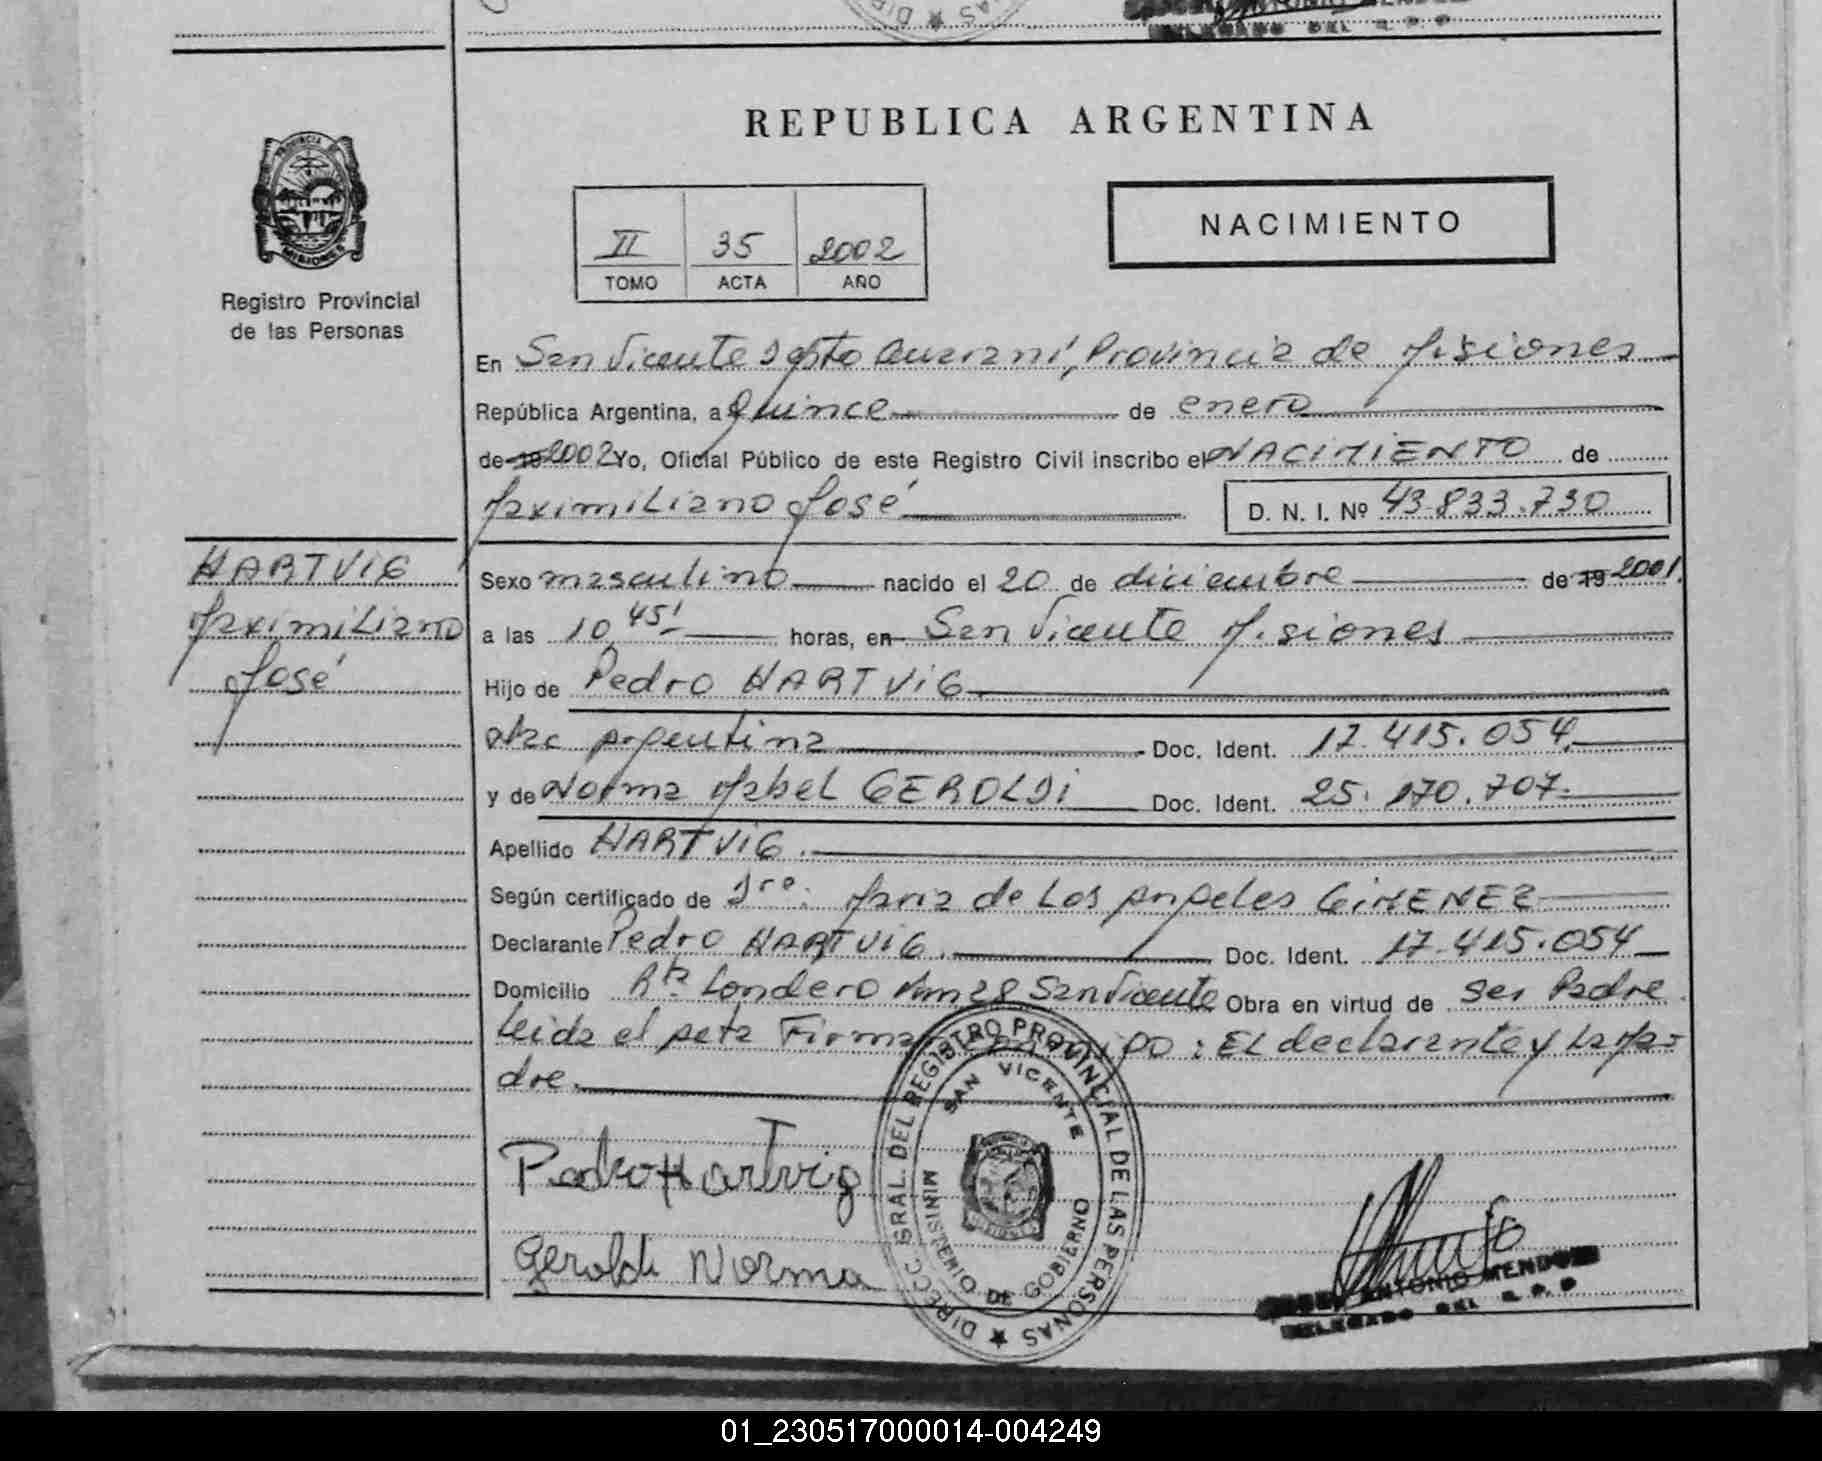 DELEGADO DEL R. P. P
PROVINCIA DE
MISIONES
Registro Provincial
de las Personas
REPUBLICA ARGENTINA
II 35 2002
TOMO ACTA AÑO
NACIMIENTO
En San Vicente Dpto Guarani, Provincia de Misiones
República Argentina, a Quince de enero
de 19 2002 Yo, Oficial Público de este Registro Civil inscribo el NACIMIENTO de
Maximiliano José D. N. I. Nº 43.833.730
HARTVIG
Maximiliano
José
Sexo masculino nacido el 20 de diciembre de 19 2001.
a las 10,45' horas, en San Vicente Misiones
Hijo de Pedro HARTVIG
Argentina Doc. Ident. 17.415.054
y de Norma Mabel GEROLDI Doc. Ident. 25.170.707
Apellido HARTVIG.
Según certificado de Dra. Maria de Los Angeles GIMENEZ
Declarante Pedro HARTVIG. Doc. Ident. 17.415.054
Domicilio Londero Km 28 San Vicente Obra en virtud de ser Padre
Leida el acta Firma : El declarante y La Ma-
dre.
Pedro Hartvig
Geroldi Norma
DIRECC. GRAL. DEL REGISTRO PROVINCIAL DE LAS PERSONAS
SAN VICENTE
MINISTERIO DE GOBIERNO
MISIONES
ANTONIO MENDOZA
DELEGADO DEL R. P. P
01_230517000014-004249